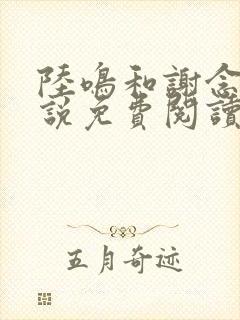 陸鳴和謝念
說免費閱讀
五月奇迹